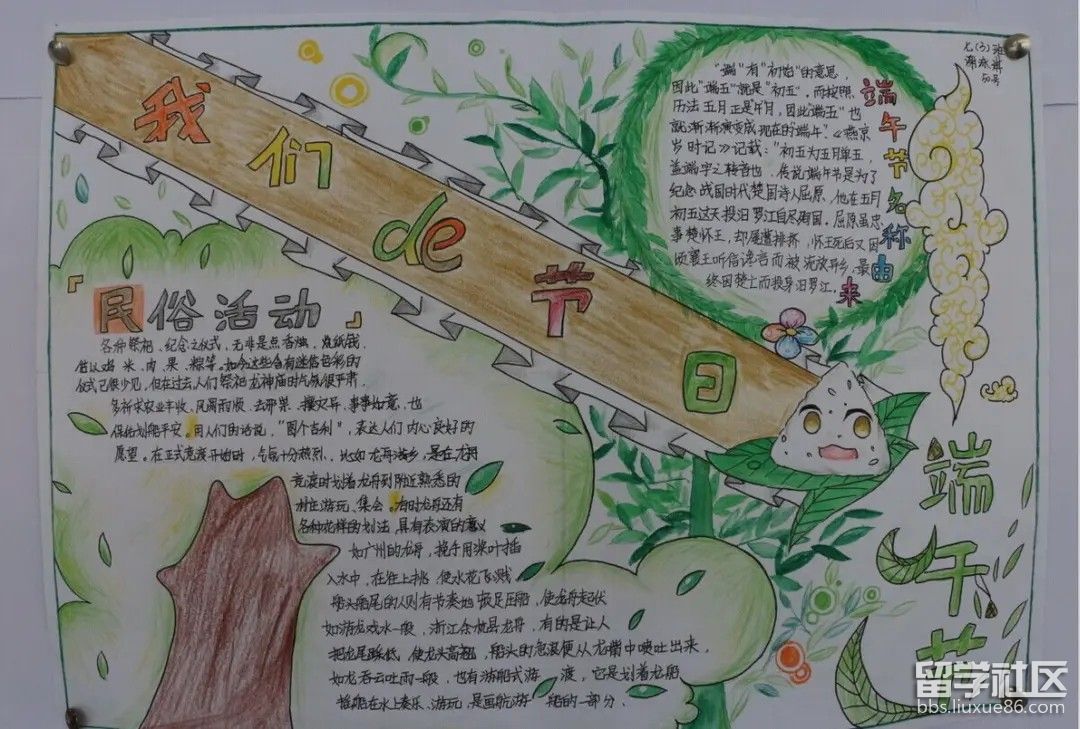 我们de节日
七(3)班
50号
端午节名称由来
"端"有"初始"的意思,
因此"端五"就是"初五"。而按照
历法五月正是午月,因此"端五"也
就渐渐演变成现在的"端午"。《燕京
岁时记》记载:"初五为五月单五,
盖端字之转音也。传说端午节是为了
纪念战国时代楚国诗人屈原,他在五月
初五这天投汨罗江自尽殉国,屈原虽忠
事楚怀王,却屡遭排挤,怀王死后又因
顷襄王听信谗言而被流放异乡,最
终因楚亡而投身汨罗江。
「民俗活动」
各种祭祀、纪念之仪式,无非是点香烛,烧纸钱,
供以鸡、米、肉、果、粽等。如今这些含有迷信色彩的
仪式已很少见,但在过去,人们祭祀龙神庙时气氛很严肃,
多祈求农业丰收、风调雨顺、去邪祟、攘灾异、事事如意,也
保佑划船平安。用人们的话说,"图个吉利",表达人们内心良好的
愿望。在正式竞渡开始时,气氛十分热烈。比如龙舟游乡,是在龙舟
竞渡时划着龙舟到附近熟悉的
村庄游玩、集会。有时龙舟还有
各种花样的划法,具有表演的意义
如广州的龙舟,挽手用桨叶插
入水中,在往上挑,使水花飞溅
船头船尾的人则有节奏地顿足压船,使龙舟起伏
如游龙戏水一般,浙江余杭县龙舟,有的是让人
把龙尾踩低,使龙头高翘,船头的急浪便从龙嘴中喷吐出来,
如龙吞云吐雨一般,也有游船式游 渡,它是划着龙船
在水上奏乐、游玩,是画舫游 船的一部分。
端午节
留学社区
bbs.liuxue86.com